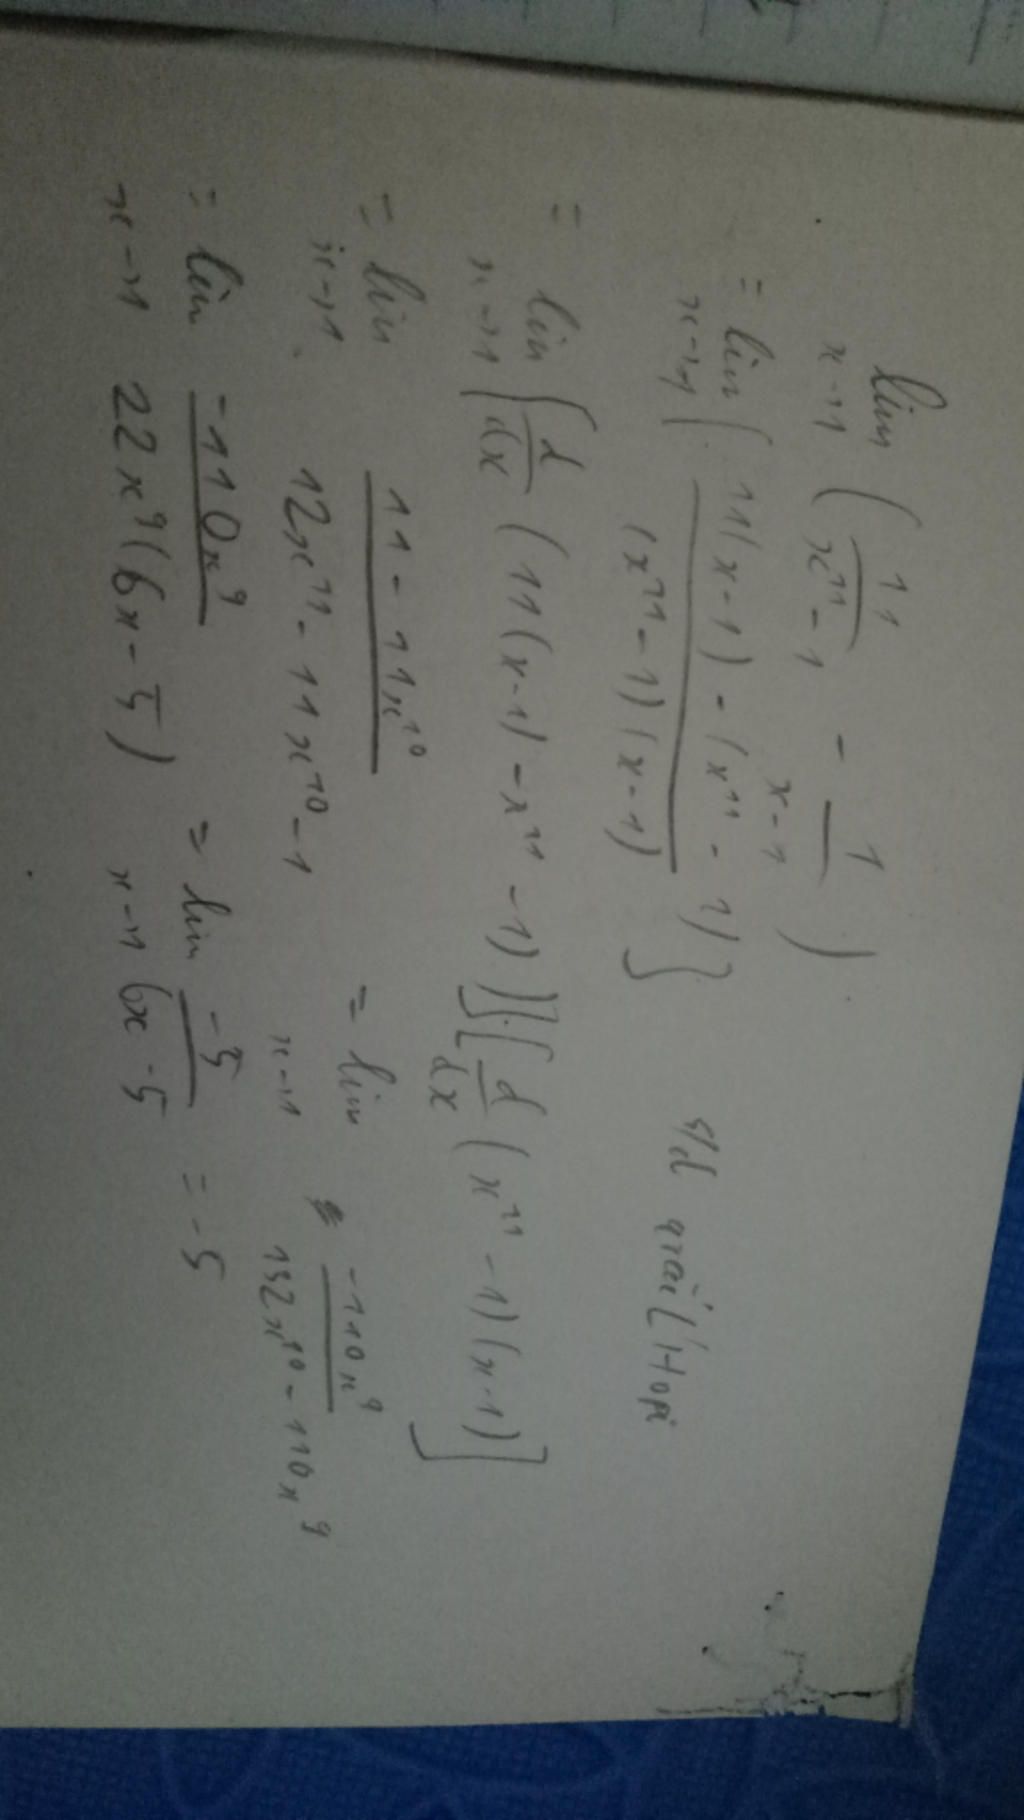 lim x→1 ( 11/(x^11 - 1) - 1/(x - 1) )
= lim x→1 { (11(x-1) - (x^11 - 1)) / ((x^11 - 1)(x-1)) } s/d L'Hopi
= lim x→1 [ d/dx (11(x-1) - x^11 - 1) ] [ d/dx (x^11 - 1)(x-1) ]
= lim x→1 (11 - 11x^10) / (12x^11 - 11x^10 - 1) = lim x→1 (-110x^9) / (132x^10 - 110x^9)
= lim x→1 (-110x^9) / (22x^9(6x - 5)) = lim x→1 (-5) / (6x - 5) = -5